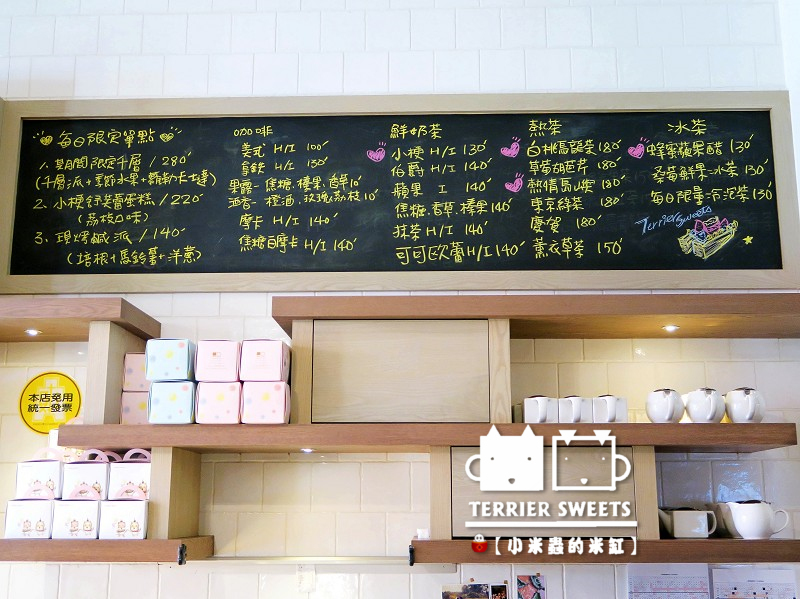 每日限定單點
1. 期間限定千層 / 280'
(千層派+季節水果+顆勒卡士達)
2. 小梗舒芙蕾蛋糕 / 220'
(荔枝口味)
3. 現烤鹹派 / 140'
(培根+馬鈴薯+洋蔥)
咖啡
美式 H/I 100'
拿鐵 H/I 130'
果露-焦糖.榛果.香草10'
酒香-橙酒.玫瑰荔枝10'
摩卡 H/I 140'
焦糖百摩卡 H/I 140'
鮮奶茶
小梗 H/I 130'
伯爵 H/I 140'
蘋果 I 140'
焦糖.香草.榛果140'
抹茶 H/I 140'
可可歐蕾H/I 140'
熱茶
白桃烏龍茶180'
草莓胡芭芹 180'
熱情馬鞭 180'
東京綠茶 180'
慶賀 180'
薰衣草茶 150'
冰茶
蜂蜜蘋果醋 130'
桑莓鮮果冰茶 130'
每日限量冷泡茶130'
Terrier Sweets
本店免用
統一發票
TERRIER SWEETS
【小米蟲的米缸】